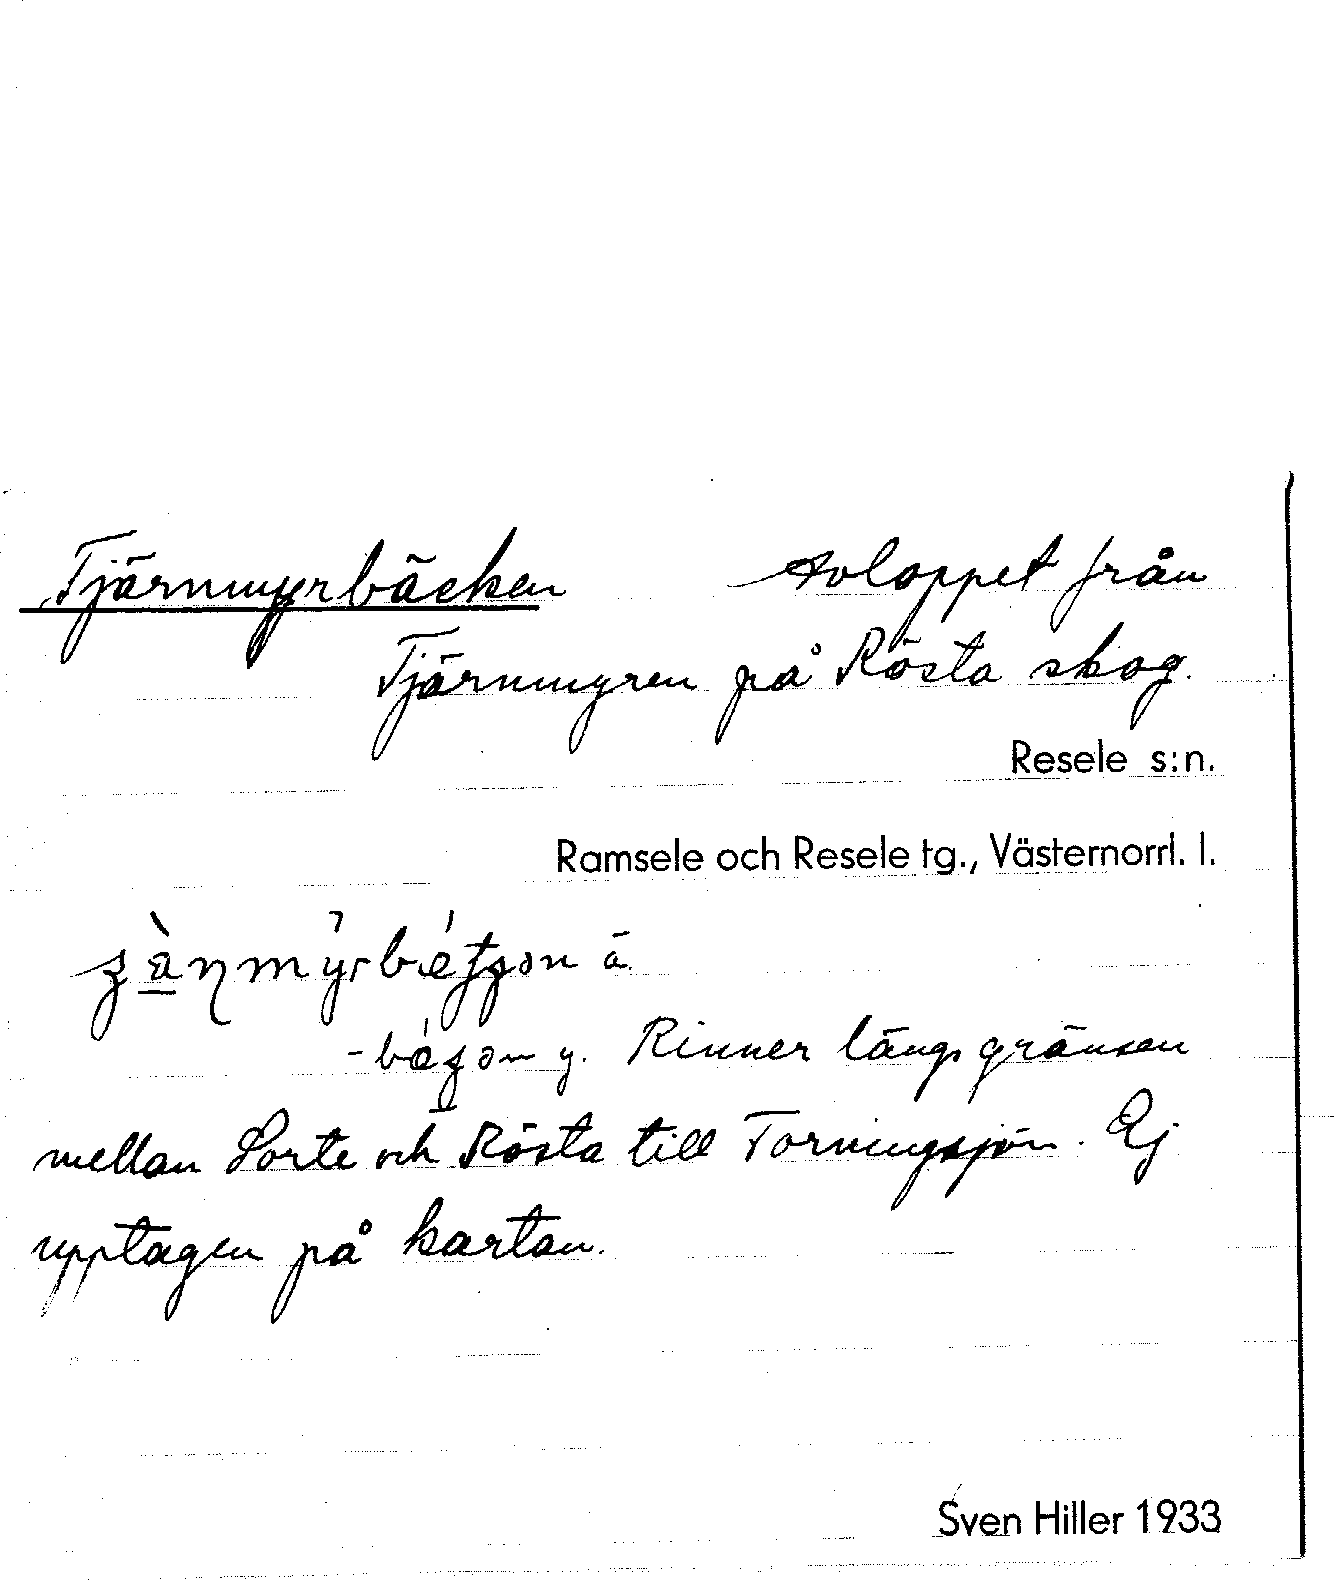 Tjärnmyrbäcken Avloppet från
Tjärnmyren på Rösta skog.
Resele s:n.
Ramsele och Resele tg., Västernorrl. l.
ä.
y. Rinner längs gränsen
mellan Sorte och Rösta till Torningsjön. Ej
upptagen på kartan.
Sven Hiller 1933